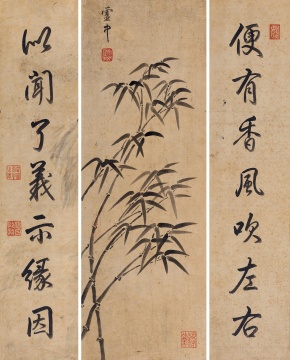 便有香風吹左右
以聞了義示緣因